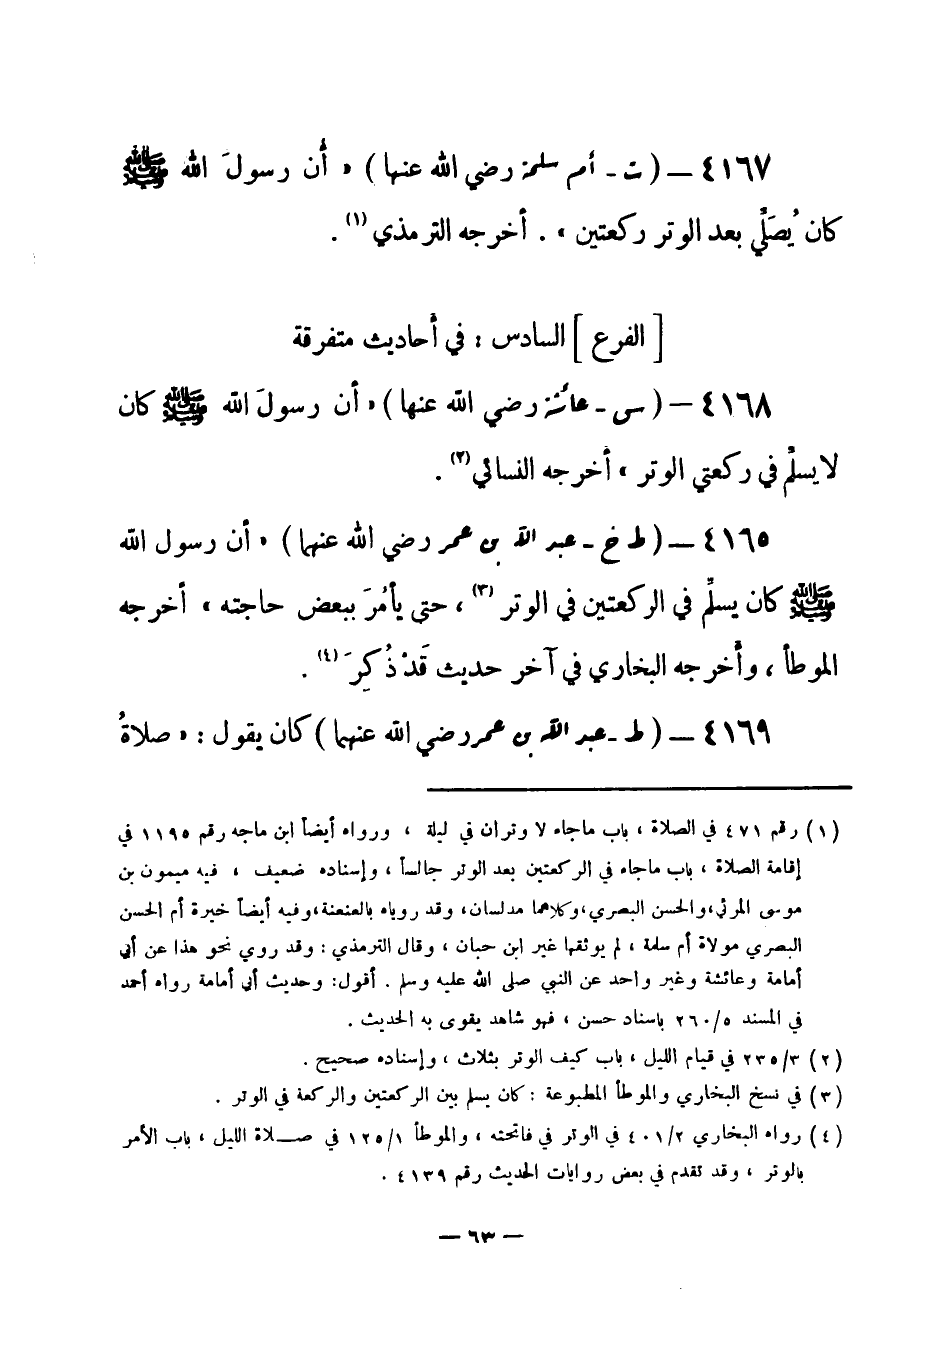 ٤١٦٧ – ( ت - أم سلمة رضي الله عنها ) « أن رسولَ الله ﷺ
كان يُصَلِّي بعد الوتر ركعتين » . أخرجه الترمذي (١) .
[ الفرع ] السادس : في أحاديث متفرقة
٤١٦٨ – ( س - عائشة رضي الله عنها ) « أن رسولَ الله ﷺ كان
لا يسلِّم في ركعتي الوتر » أخرجه النسائي (٢) .
٤١٦٥ – ( ط خ - عبد الله بن عمر رضي الله عنهما ) « أن رسول الله
ﷺ كان يسلِّم في الركعتين في الوتر (٣) ، حتى يأمُرَ ببعض حاجته » أخرجه
الموطأ ، وأخرجه البخاري في آخر حديث قَدْ ذُكِرَ (٤) .
٤١٦٩ – ( ط - عبد الله بن عمر رضي الله عنهما ) كان يقول : « صلاةُ
(١) رقم ٤٧١ في الصلاة ، باب ماجاء لا وتران في ليلة ، ورواه أيضاً ابن ماجه رقم ١١٩٥ في
إقامة الصلاة ، باب ماجاء في الركعتين بعد الوتر جالساً ، وإسناده ضعيف ، فيه ميمون بن
موسى المرئي ، والحسن البصري ، وكلاهما مدلسان ، وقد روياه بالعنعنة ، وفيه أيضاً خيرة أم الحسن
البصري مولاة أم سلمة ، لم يوثقها غير ابن حبان ، وقال الترمذي : وقد روي نحو هذا عن أبي
أمامة وعائشة وغير واحد عن النبي صلى الله عليه وسلم . أقول : وحديث أبي أمامة رواه أحمد
في المسند ٥/٢٦٠ باسناد حسن ، فهو شاهد يقوى به الحديث .
(٢) ٣/٢٣٥ في قيام الليل ، باب كيف الوتر بثلاث ، وإسناده صحيح .
(٣) في نسخ البخاري والموطأ المطبوعة : كان يسلم بين الركعتين والركعة في الوتر .
(٤) رواه البخاري ٢/٤٠١ في الوتر في فاتحته ، والموطأ ١/١٢٥ في صلاة الليل ، باب الأمر
بالوتر ، وقد تقدم في بعض روايات الحديث رقم ٤١٣٩ .
– ٦٣ –